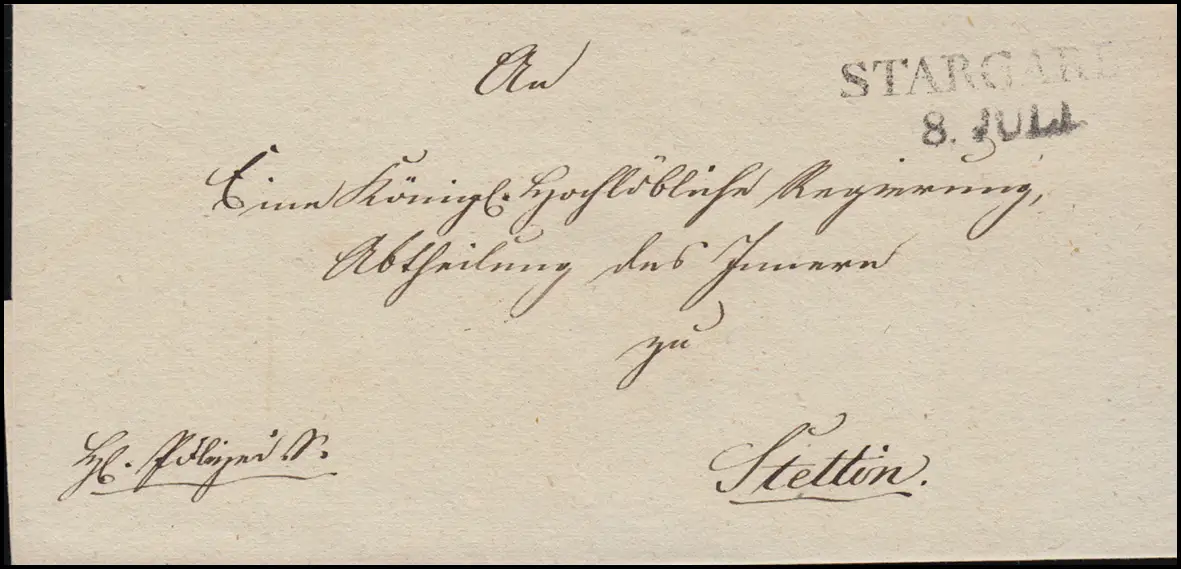 An
STARGARD
8. JULI
Eine Königl. Hochlöbliche Regierung,
Abtheilung des Innern
zu
Polizei S.
Stettin.